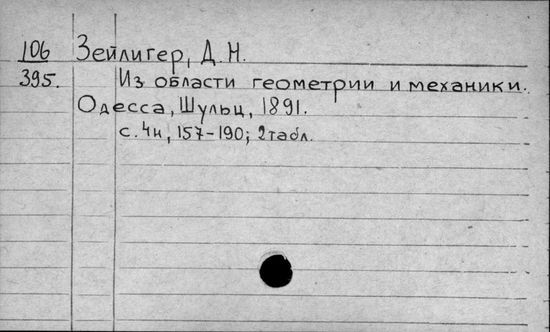 106 Зейлигер, Д. Н.
395. Из области геометрии и механики.
Одесса, Шульц, 1891.
с. 4н, 157-190; 2 табл.